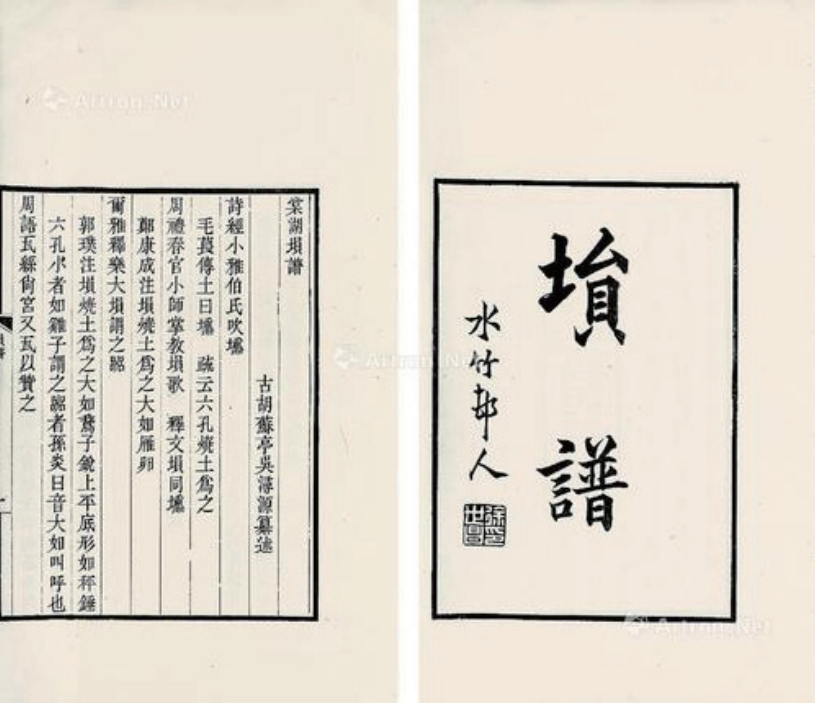 塤譜
水竹邨人
徐世昌
棠湖塤譜
古胡蘇亭吳潯源纂述
詩經小雅伯氏吹壎
毛萇傳土曰壎 疏云六孔燒土爲之
周禮春官小師掌教塤歌 釋文塤同壎
鄭康成注塤燒土爲之大如雁卵
爾雅釋樂大塤謂之嘂
郭璞注塤燒土爲之大如鵞子銳上平底形如秤錘
六孔小者如雞子謂之嘂者孫炎曰音大如叫呼也
周語瓦絲尙宮又瓦以贊之
Artron.Net
Artron.Net
Artron.Net